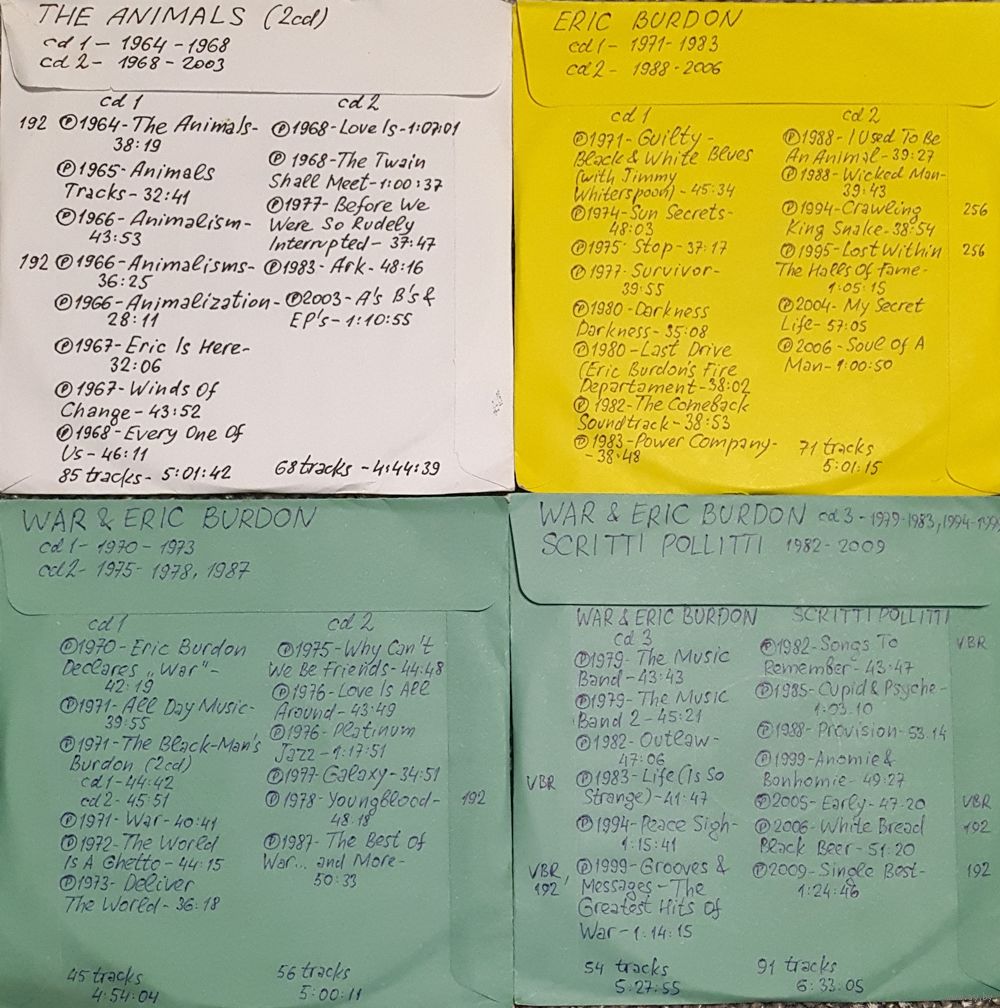 THE ANIMALS (2cd)
cd 1 – 1964 – 1968
cd 2 – 1968 – 2003
cd 1
192 Ⓟ1964 - The Animals -
38:19
Ⓟ1965 - Animals
Tracks - 32:41
Ⓟ1966 - Animalism -
43:53
192 Ⓟ1966 - Animalisms -
36:25
Ⓟ1966 - Animalization -
28:11
Ⓟ1967 - Eric Is Here -
32:06
Ⓟ1967 - Winds Of
Change - 43:52
Ⓟ1968 - Every One Of
Us - 46:11
85 tracks - 5:01:42
cd 2
Ⓟ1968 - Love Is - 1:07:01
Ⓟ1968 - The Twain
Shall Meet - 1:00:37
Ⓟ1977 - Before We
Were So Rudely
Interrupted - 37:47
Ⓟ1983 - Ark - 48:16
Ⓟ2003 - A's B's &
EP's - 1:10:55
68 tracks - 4:44:39
ERIC BURDON
cd 1 - 1971 - 1983
cd 2 - 1988 - 2006
cd 1
Ⓟ1971 - Guilty -
Black & White Blues
(with Jimmy
Whiterspoon) - 45:34
Ⓟ1974 - Sun Secrets -
48:03
Ⓟ1975 - Stop - 37:17
Ⓟ1977 - Survivor -
39:55
Ⓟ1980 - Darkness
Darkness - 35:08
Ⓟ1980 - Last Drive
(Eric Burdon's Fire
Departament - 38:02
Ⓟ 1982 - The Comeback
Soundtrack - 38:53
Ⓟ1983 - Power Company -
- 38:48
cd 2
Ⓟ1988 - I Used To Be
An Animal - 39:27
Ⓟ1988 - Wicked Man -
39:43
Ⓟ1994 - Crawling 256
King Snake - 38:54
Ⓟ1995 - Lost Within 256
The Halls Of Fame -
1:05:15
Ⓟ2004 - My Secret
Life - 57:05
Ⓟ2006 - Soul of A
Man - 1:00:50
71 tracks
5:01:15
WAR & ERIC BURDON
cd 1 - 1970 - 1973
cd 2 - 1975 - 1978, 1987
cd 1
Ⓟ1970 - Eric Burdon
Declares „War" -
42:19
Ⓟ1971 - All Day Music -
39:55
Ⓟ1971 - The Black-Man's
Burdon (2cd)
cd 1 - 44:42
cd 2 - 45:51
Ⓟ1971 - War - 40:41
Ⓟ1972 - The World
Is A Ghetto - 44:15
Ⓟ1973 - Deliver
The World - 36:18
45 tracks
4:54:04
cd 2
Ⓟ1975 - Why Can't
We Be Friends - 44:48
Ⓟ1976 - Love Is All
Around - 43:49
Ⓟ1976 - Platinum
Jazz - 1:17:51
Ⓟ1977 - Galaxy - 34:51
Ⓟ 1978 - Youngblood - 192
48:18
Ⓟ1987 - The Best Of
War... and More -
50:33
56 tracks
5:00:11
WAR & ERIC BURDON cd 3 - 1979-1983, 1994-199
SCRITTI POLLITTI 1982 - 2009
WAR & ERIC BURDON
cd 3
Ⓟ1979 - The Music
Band - 43:43
Ⓟ1979 - The Music
Band 2 - 45:21
Ⓟ1982 - Outlaw -
47:06
VBR Ⓟ1983 - Life (Is So
Strange) - 41:47
Ⓟ1994 - Peace Sigh -
1:15:41
VBR, Ⓟ1999 - Grooves &
192 Messages - The
Greatest Hits Of
War - 1:14:15
54 tracks
5:27:55
SCRITTI POLLITTI
Ⓟ1982 - Songs To VBR
Remember - 43:47
Ⓟ1985 - Cupid & Psyche -
1:03:10
Ⓟ1988 - Provision - 53:14
Ⓟ1999 - Anomie &
Bonhomie - 49:27
Ⓟ2005 - Early - 47:20 VBR
Ⓟ2006 - White Bread 192
Black Beer - 51:20
Ⓟ2009 - Single Best - 192
1:24:46
91 tracks
6:33:05